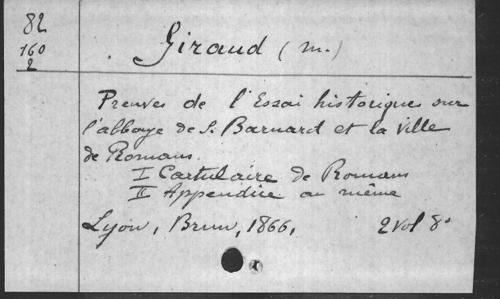 82
160
2
Giraud (M.)
Preuves de l'Essai historique sur
l'abbaye de S. Barnard et la Ville
de Romans.
I Cartulaire de Romans
II Appendice au même
Lyon, Brun, 1866, 2 Vol 8°